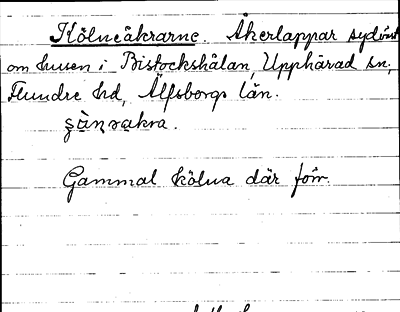 Kölneåkrarne. Åkerlappar sydväst
om husen i Bistockshålan, Upphärad sn,
Flundre hd, Älfsborgs län.
Gammal kölna där förr.